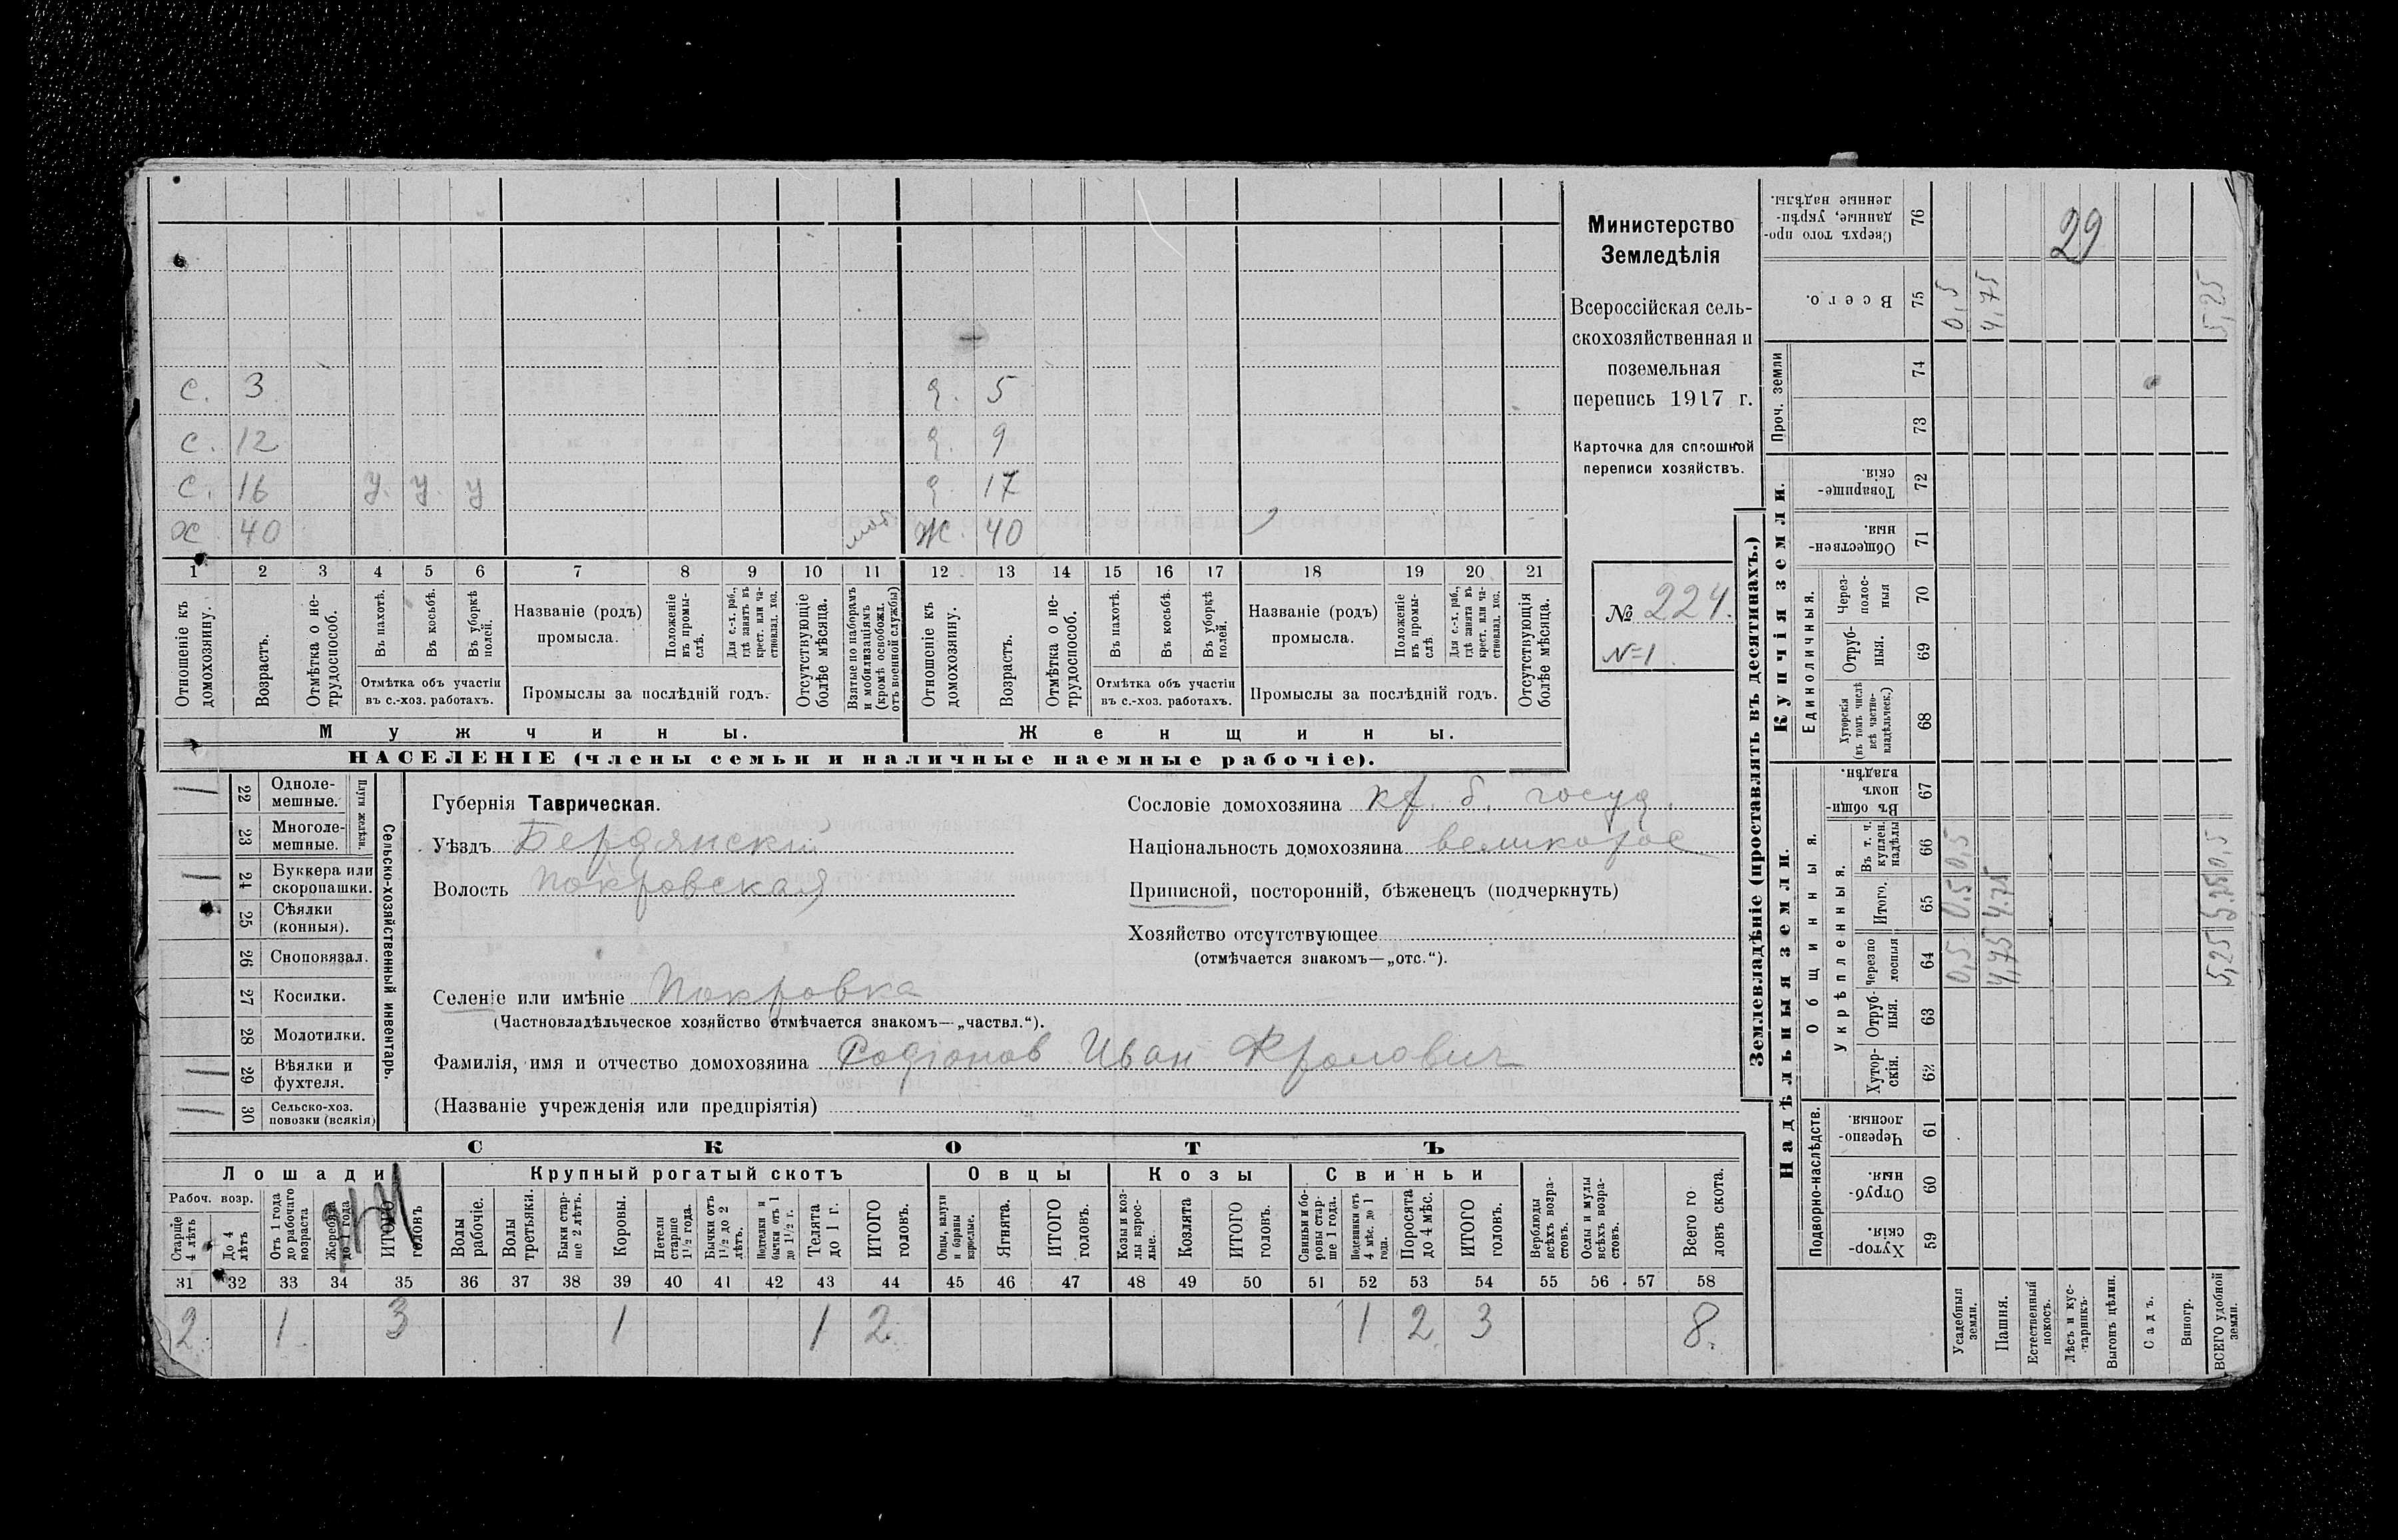 с. 3 д. 5
с. 12 д. 9
с. 16 у. у. у д. 17
х. 40 моб. Ж. 40
1 2 3 4 5 6 7 8 9 10 11 12 13 14 15 16 17 18 19 20 21
Отношеніе къ домохозяину.
Возрастъ.
Отмѣтка о не-
трудоспособ.
Въ пахотѣ.
Въ косьбѣ.
Въ уборкѣ
полей.
Отмѣтка объ участіи
въ с.-хоз. работахъ.
Названіе (родъ)
промысла.
Положеніе
въ промы-
слѣ.
Для с.-х. раб.,
гдѣ занятъ въ
крест. или ча-
стновлад. хоз.
Промыслы за послѣдній годъ.
Отсутствующіе
болѣе мѣсяца.
Взятые по наборамъ
и мобилизаціямъ
(кромѣ освобожд.
отъ военной службы)
Отношеніе къ
домохозяину.
Возрастъ.
Отмѣтка о не-
трудоспособ.
Въ пахотѣ.
Въ косьбѣ.
Въ уборкѣ
полей.
Отмѣтка объ участіи
въ с.-хоз. работахъ.
Названіе (родъ)
промысла.
Положеніе
въ промы-
слѣ
Для с.-х. раб.,
гдѣ занята въ
крест. или ча-
стновлад. хоз.
Промыслы за послѣдній годъ.
Отсутствующія
болѣе мѣсяца.
Мужчины. Женщины.
НАСЕЛЕНІЕ (члены семьи и наличные наемные рабочіе).
Министерство
Земледѣлія
Всероссійская сель-
скохозяйственная и
поземельная
перепись 1917 г.
Карточка для сплошной
переписи хозяйствъ.
№ 224.
N=1
1 22 Одноле-
мешные.
23 Многоле-
мешные.
Плуги желѣзн.
1 24 Буккера или
скоропашки.
25 Сѣялки
(конныя).
26 Сноповязал.
27 Косилки.
28 Молотилки.
1 29 Вѣялки и
фухтеля.
11 30 Сельско-хоз.
повозки (всякія)
Сельско-хозяйственный инвентарь.
Губернія Таврическая.
Уѣздъ Бердянскій
Волость Покровская
Сословіе домохозяина кр. б. госуд.
Національность домохозяина великорос
Приписной, посторонній, бѣженецъ (подчеркнуть)
Хозяйство отсутствующее
(отмѣчается знакомъ—„отс.“).
Селеніе или имѣніе Покровка
(Частновладѣльческое хозяйство отмѣчается знакомъ—„частвл.“).
Фамилія, имя и отчество домохозяина Родіонов Иван Фролович
(Названіе учрежденія или предпріятія)
СКОТЪ
Лошади Крупный рогатый скотъ Овцы Козы Свиньи
Рабоч. возр.
Старше
4 лѣтъ
До 4
лѣтъ
Отъ 1 года
до рабочаго
возраста
Жеребята
до 1 года
ИТОГО
головъ
Волы
рабочіе.
Волы
третьяки.
Быки стар-
ше 2 лѣтъ.
Коровы.
Нетели
старше
1½ года.
Бычки отъ
1½ до 2
лѣтъ.
Подтелки и
бычки отъ 1
до 1½ г.
Телята
до 1 г.
ИТОГО
головъ.
Овцы, валухи
и бараны
взрослые.
Ягнята.
ИТОГО
головъ.
Козы и коз-
лы взрос-
лые.
Козлята
ИТОГО
головъ.
Свиньи и бо-
ровы стар-
ше 1 года.
Подсвинки отъ
4 мѣс. до 1
года.
Поросята
до 4 мѣс.
ИТОГО
головъ.
Верблюды
всѣхъ возра-
стовъ.
Ослы и мулы
всѣхъ возра-
стовъ.
Всего го
ловъ скота.
31 32 33 34 35 36 37 38 39 40 41 42 43 44 45 46 47 48 49 50 51 52 53 54 55 56 57 58
2. 1. 3 1 1 2. 1 2 3 8.
Землевладѣніе (проставлять въ десятинахъ.)
Надѣльныя земли. Купчія земли.
Сверхъ того про-
данные, укрѣп-
ленные надѣлы.
76
29
Всего. 75 0,5 4,75 5,25
Проч. земли
74
73
Товарище-
скія.
72
Обществен-
ныя.
71
Единоличныя.
Через-
полос-
ныя
70
Отруб-
ныя.
69
Хуторскія
(въ томъ числѣ
всѣ частно-
владѣльческ.)
68
Общинныя.
Въ общи-
номъ
владѣн.
67
Укрѣпленныя.
Въ т. ч.
куплен.
надѣлы
66 0,5 0,5
Итого. 65 0.5 4.75 5.25
Черезпо
лосныя
64 0,5 4,75 5,25
Отруб-
ныя.
63
Хутор-
скія.
62
Подворно-наслѣдств.
Черезпо-
лосныя.
61
Отруб-
ныя.
60
Хутор-
скія.
59
Усадебныя
земли.
Пашня.
Естественный
покосъ.
Лѣсъ и кус-
тарникъ.
Выгонъ цѣлин.
Садъ.
Виногр.
ВСЕГО удобной
земли.